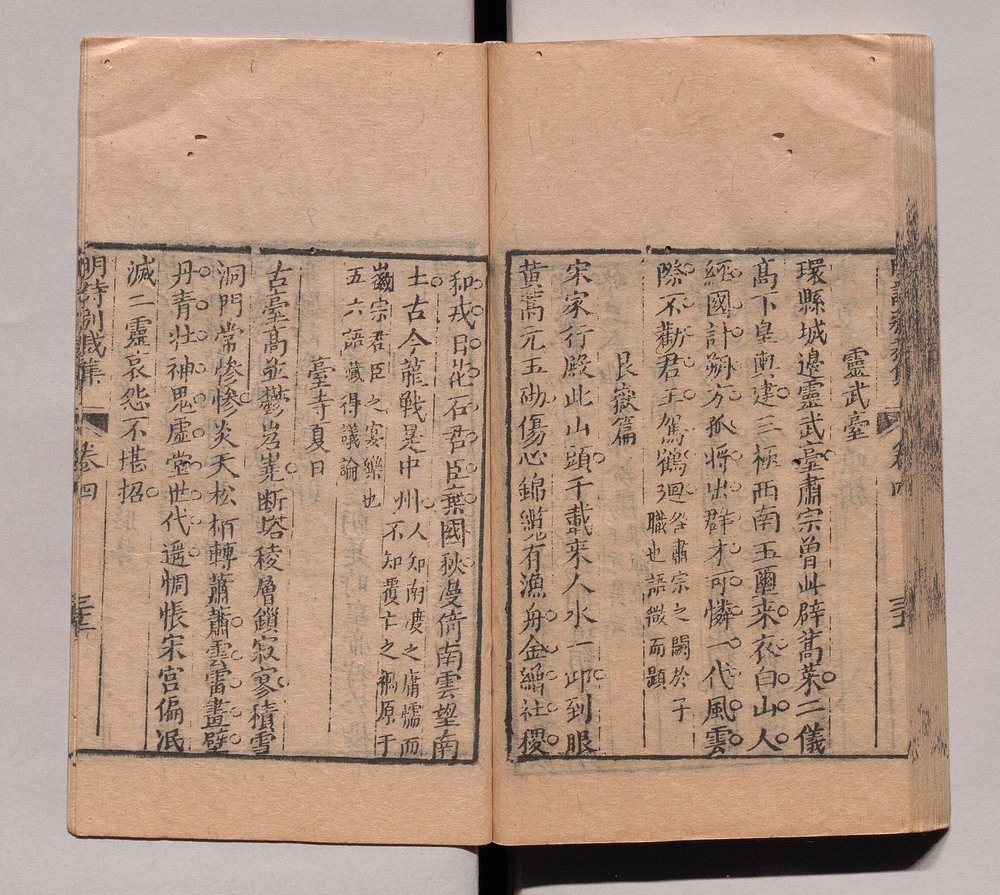 靈武臺
環縣城邊靈武臺肅宗曾此辟蒿萊二儀
高下皇輿建三極西南玉璽來衣白山人
經國計朔方孤將出群才可憐一代風雲
際不勸君王駕鶴迴咎肅宗之闕於子
職也語微而顯
艮嶽篇
宋家行殿此山頭千載來人水一邱到眼
黃蒿元玉砌傷心錦纜有漁舟金繒社稷
和戎日花石君臣棄國秋漫倚南雲望南
土古今龍戰是中州人知南渡之庸懦而
不知覆亡之禍原于
徽宗君臣之宴樂也
五六語藏得議論
臺寺夏日
古臺高並鬱岧嶤斷塔稜層鎖寂寥積雪
洞門常慘慘炎天松柏轉蕭蕭雲雷畫壁
丹青壯神鬼虛堂世代遙惆悵宋宮偏泯
滅二靈哀怨不堪招
明詩別裁集 卷四